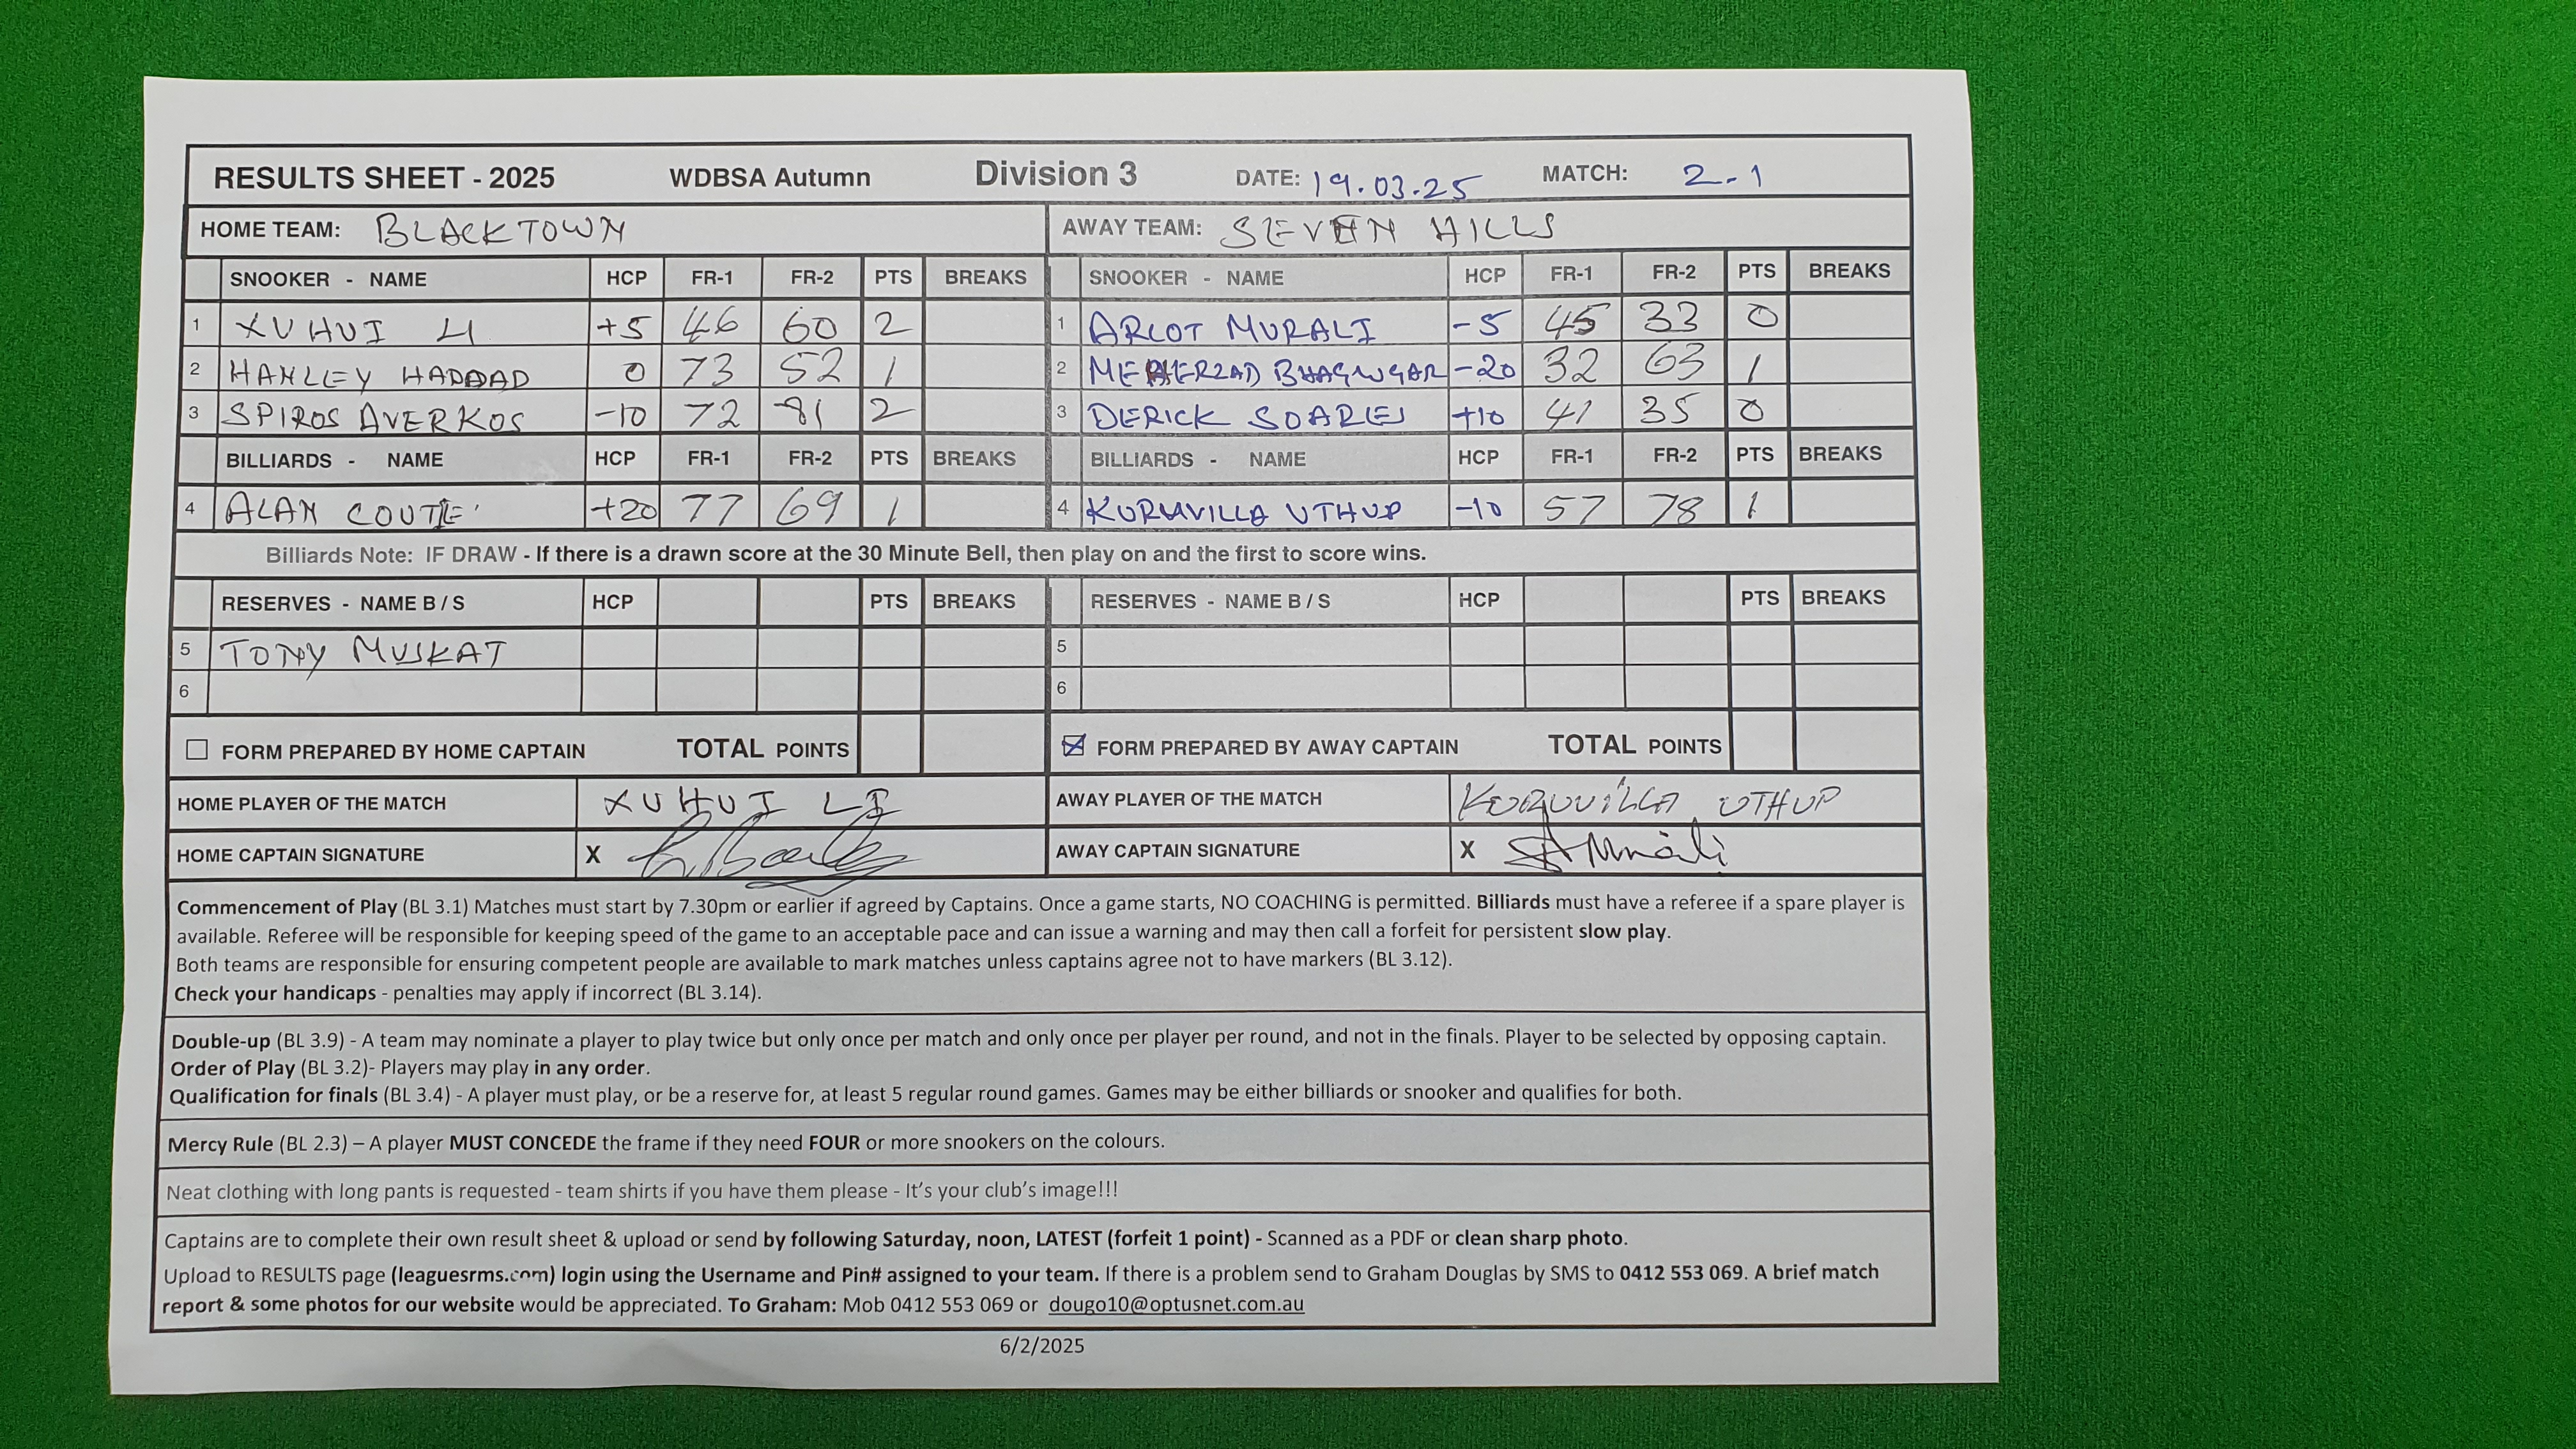 RESULTS SHEET - 2025 WDBSA Autumn Division 3 DATE: 19.03.25 MATCH: 2-1
HOME TEAM: BLACKTOWN AWAY TEAM: SEVEN HILLS
SNOOKER - NAME HCP FR-1 FR-2 PTS BREAKS SNOOKER - NAME HCP FR-1 FR-2 PTS BREAKS
1 XUHUI LI +5 46 60 2 1 ARLOT MURALI -5 45 33 0
2 HANLEY HADDAD 0 73 52 1 2 MEHERZAD BHAGWGAR -20 32 63 1
3 SPIROS AVERKOS -10 72 81 2 3 DERICK SOARES +10 41 35 0
BILLIARDS - NAME HCP FR-1 FR-2 PTS BREAKS BILLIARDS - NAME HCP FR-1 FR-2 PTS BREAKS
4 ALAN COUTE' +20 77 69 1 4 KURUVILLA UTHUP -10 57 78 1
Billiards Note: IF DRAW - If there is a drawn score at the 30 Minute Bell, then play on and the first to score wins.
RESERVES - NAME B / S HCP PTS BREAKS RESERVES - NAME B / S HCP PTS BREAKS
5 TONY MUSKAT 5
6 6
FORM PREPARED BY HOME CAPTAIN TOTAL POINTS FORM PREPARED BY AWAY CAPTAIN TOTAL POINTS
HOME PLAYER OF THE MATCH XUHUI LI AWAY PLAYER OF THE MATCH KURUVILLA UTHUP
HOME CAPTAIN SIGNATURE X AWAY CAPTAIN SIGNATURE X
Commencement of Play (BL 3.1) Matches must start by 7.30pm or earlier if agreed by Captains. Once a game starts, NO COACHING is permitted. Billiards must have a referee if a spare player is
available. Referee will be responsible for keeping speed of the game to an acceptable pace and can issue a warning and may then call a forfeit for persistent slow play.
Both teams are responsible for ensuring competent people are available to mark matches unless captains agree not to have markers (BL 3.12).
Check your handicaps - penalties may apply if incorrect (BL 3.14).
Double-up (BL 3.9) - A team may nominate a player to play twice but only once per match and only once per player per round, and not in the finals. Player to be selected by opposing captain.
Order of Play (BL 3.2)- Players may play in any order.
Qualification for finals (BL 3.4) - A player must play, or be a reserve for, at least 5 regular round games. Games may be either billiards or snooker and qualifies for both.
Mercy Rule (BL 2.3) – A player MUST CONCEDE the frame if they need FOUR or more snookers on the colours.
Neat clothing with long pants is requested - team shirts if you have them please - It's your club's image!!!
Captains are to complete their own result sheet & upload or send by following Saturday, noon, LATEST (forfeit 1 point) - Scanned as a PDF or clean sharp photo.
Upload to RESULTS page (leaguesrms.com) login using the Username and Pin# assigned to your team. If there is a problem send to Graham Douglas by SMS to 0412 553 069. A brief match
report & some photos for our website would be appreciated. To Graham: Mob 0412 553 069 or dougo10@optusnet.com.au
6/2/2025